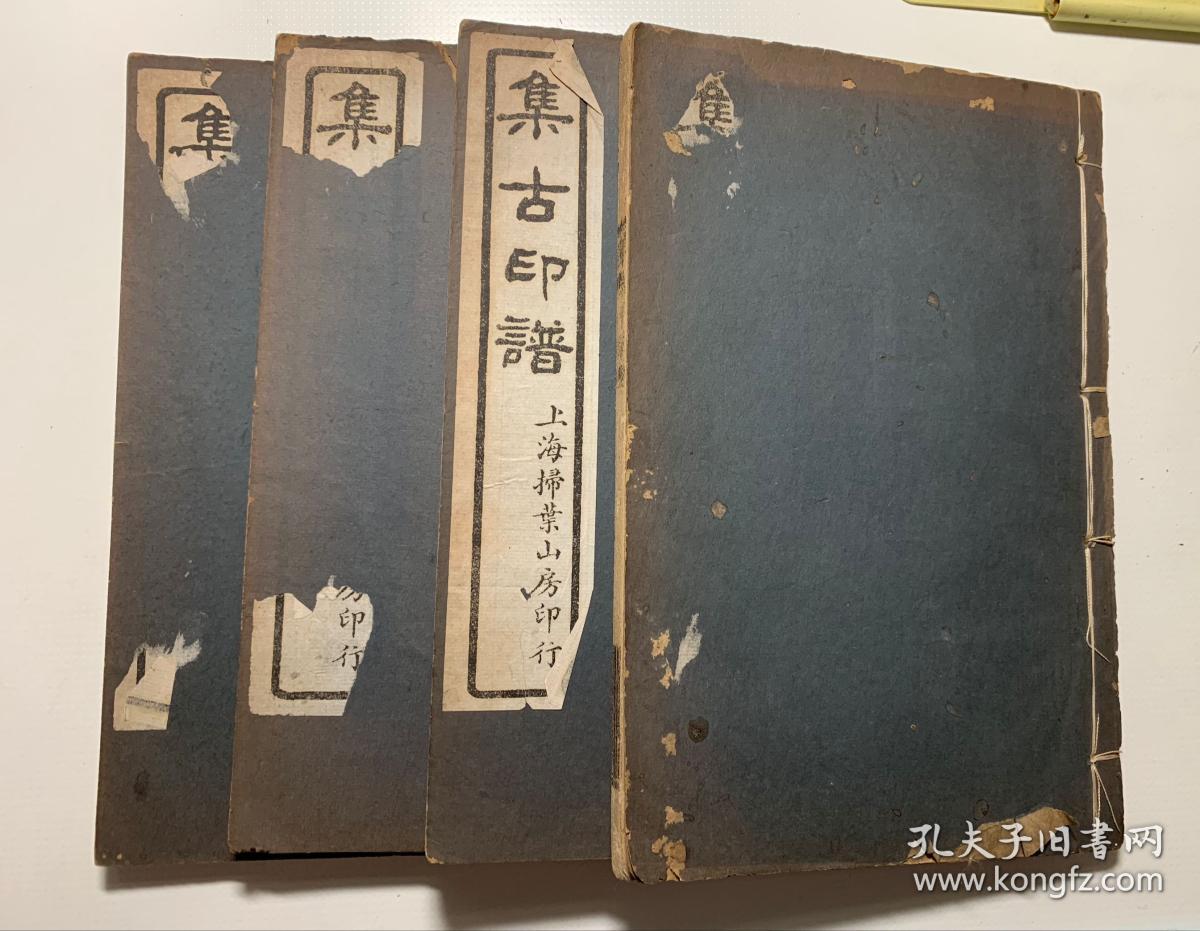 集
集
印行
集古印譜
上海掃葉山房印行
孔夫子旧书网
www.kongfz.com